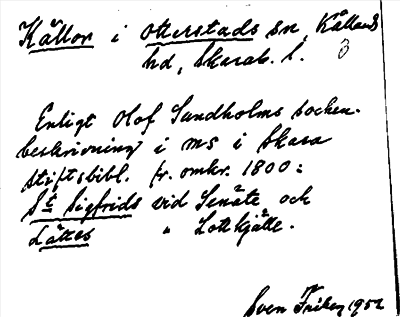 Källor i Otterstads sn, Kållands
hd, Skarab. l.
3
Enligt Olof Sundholms socken-
beskrivning i ms i Skara
stiftsbibl. fr. omkr. 1800:
St Sigfrids vid Senäte och
Lättes " Lottkjälle.
Sven 1952